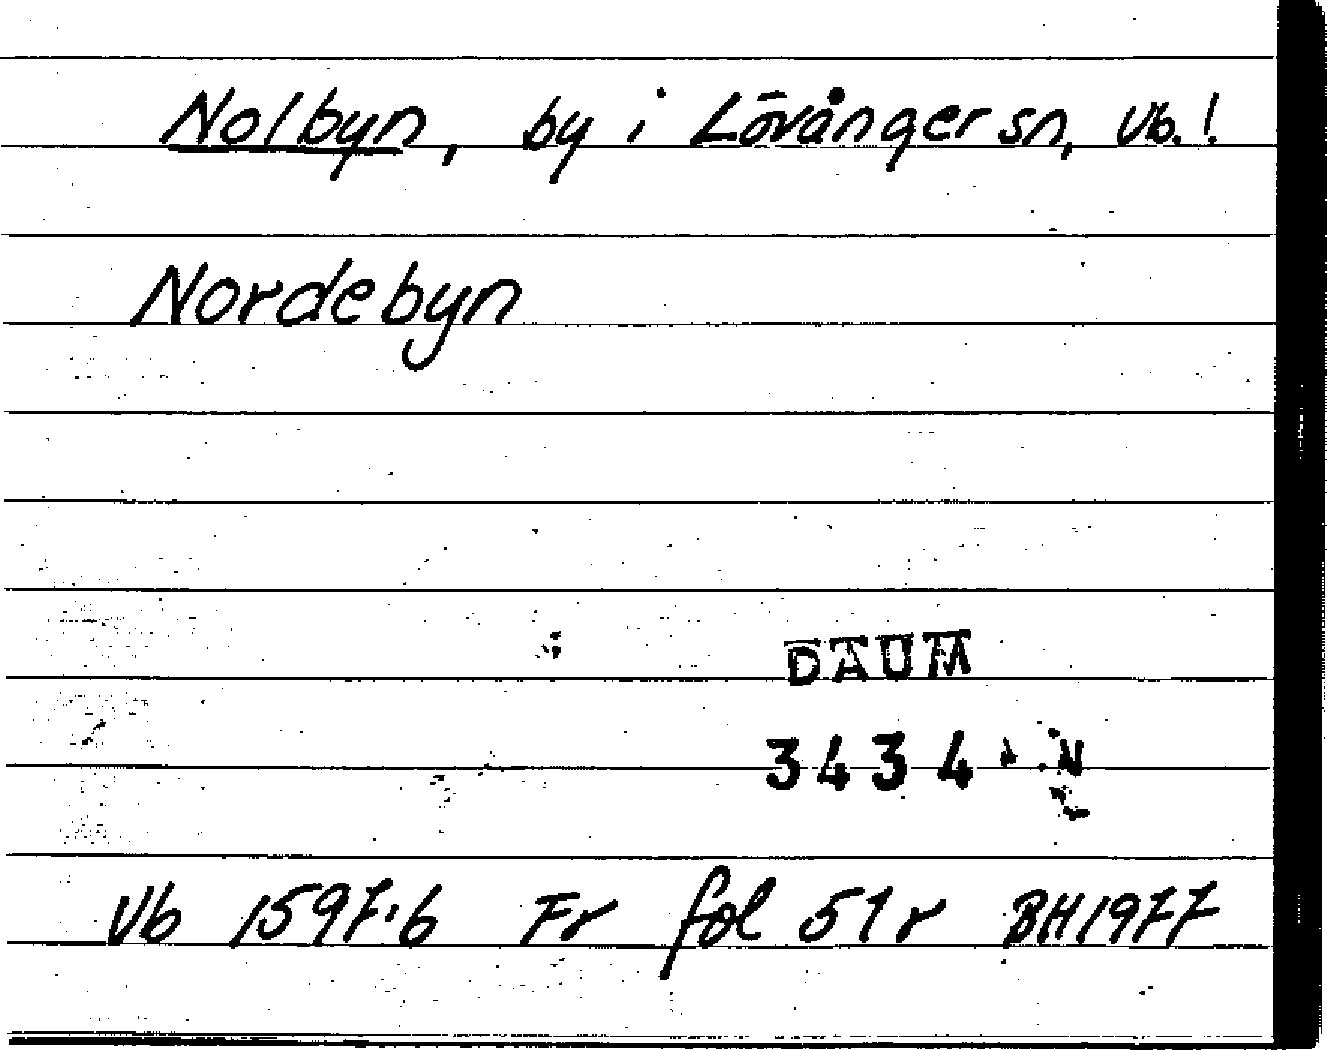 Nolbyn, by i Lövånger sn, Vb.!
Nordebyn
DAUM
3434
Vb 1597:6 Fr fol 51r BH1977